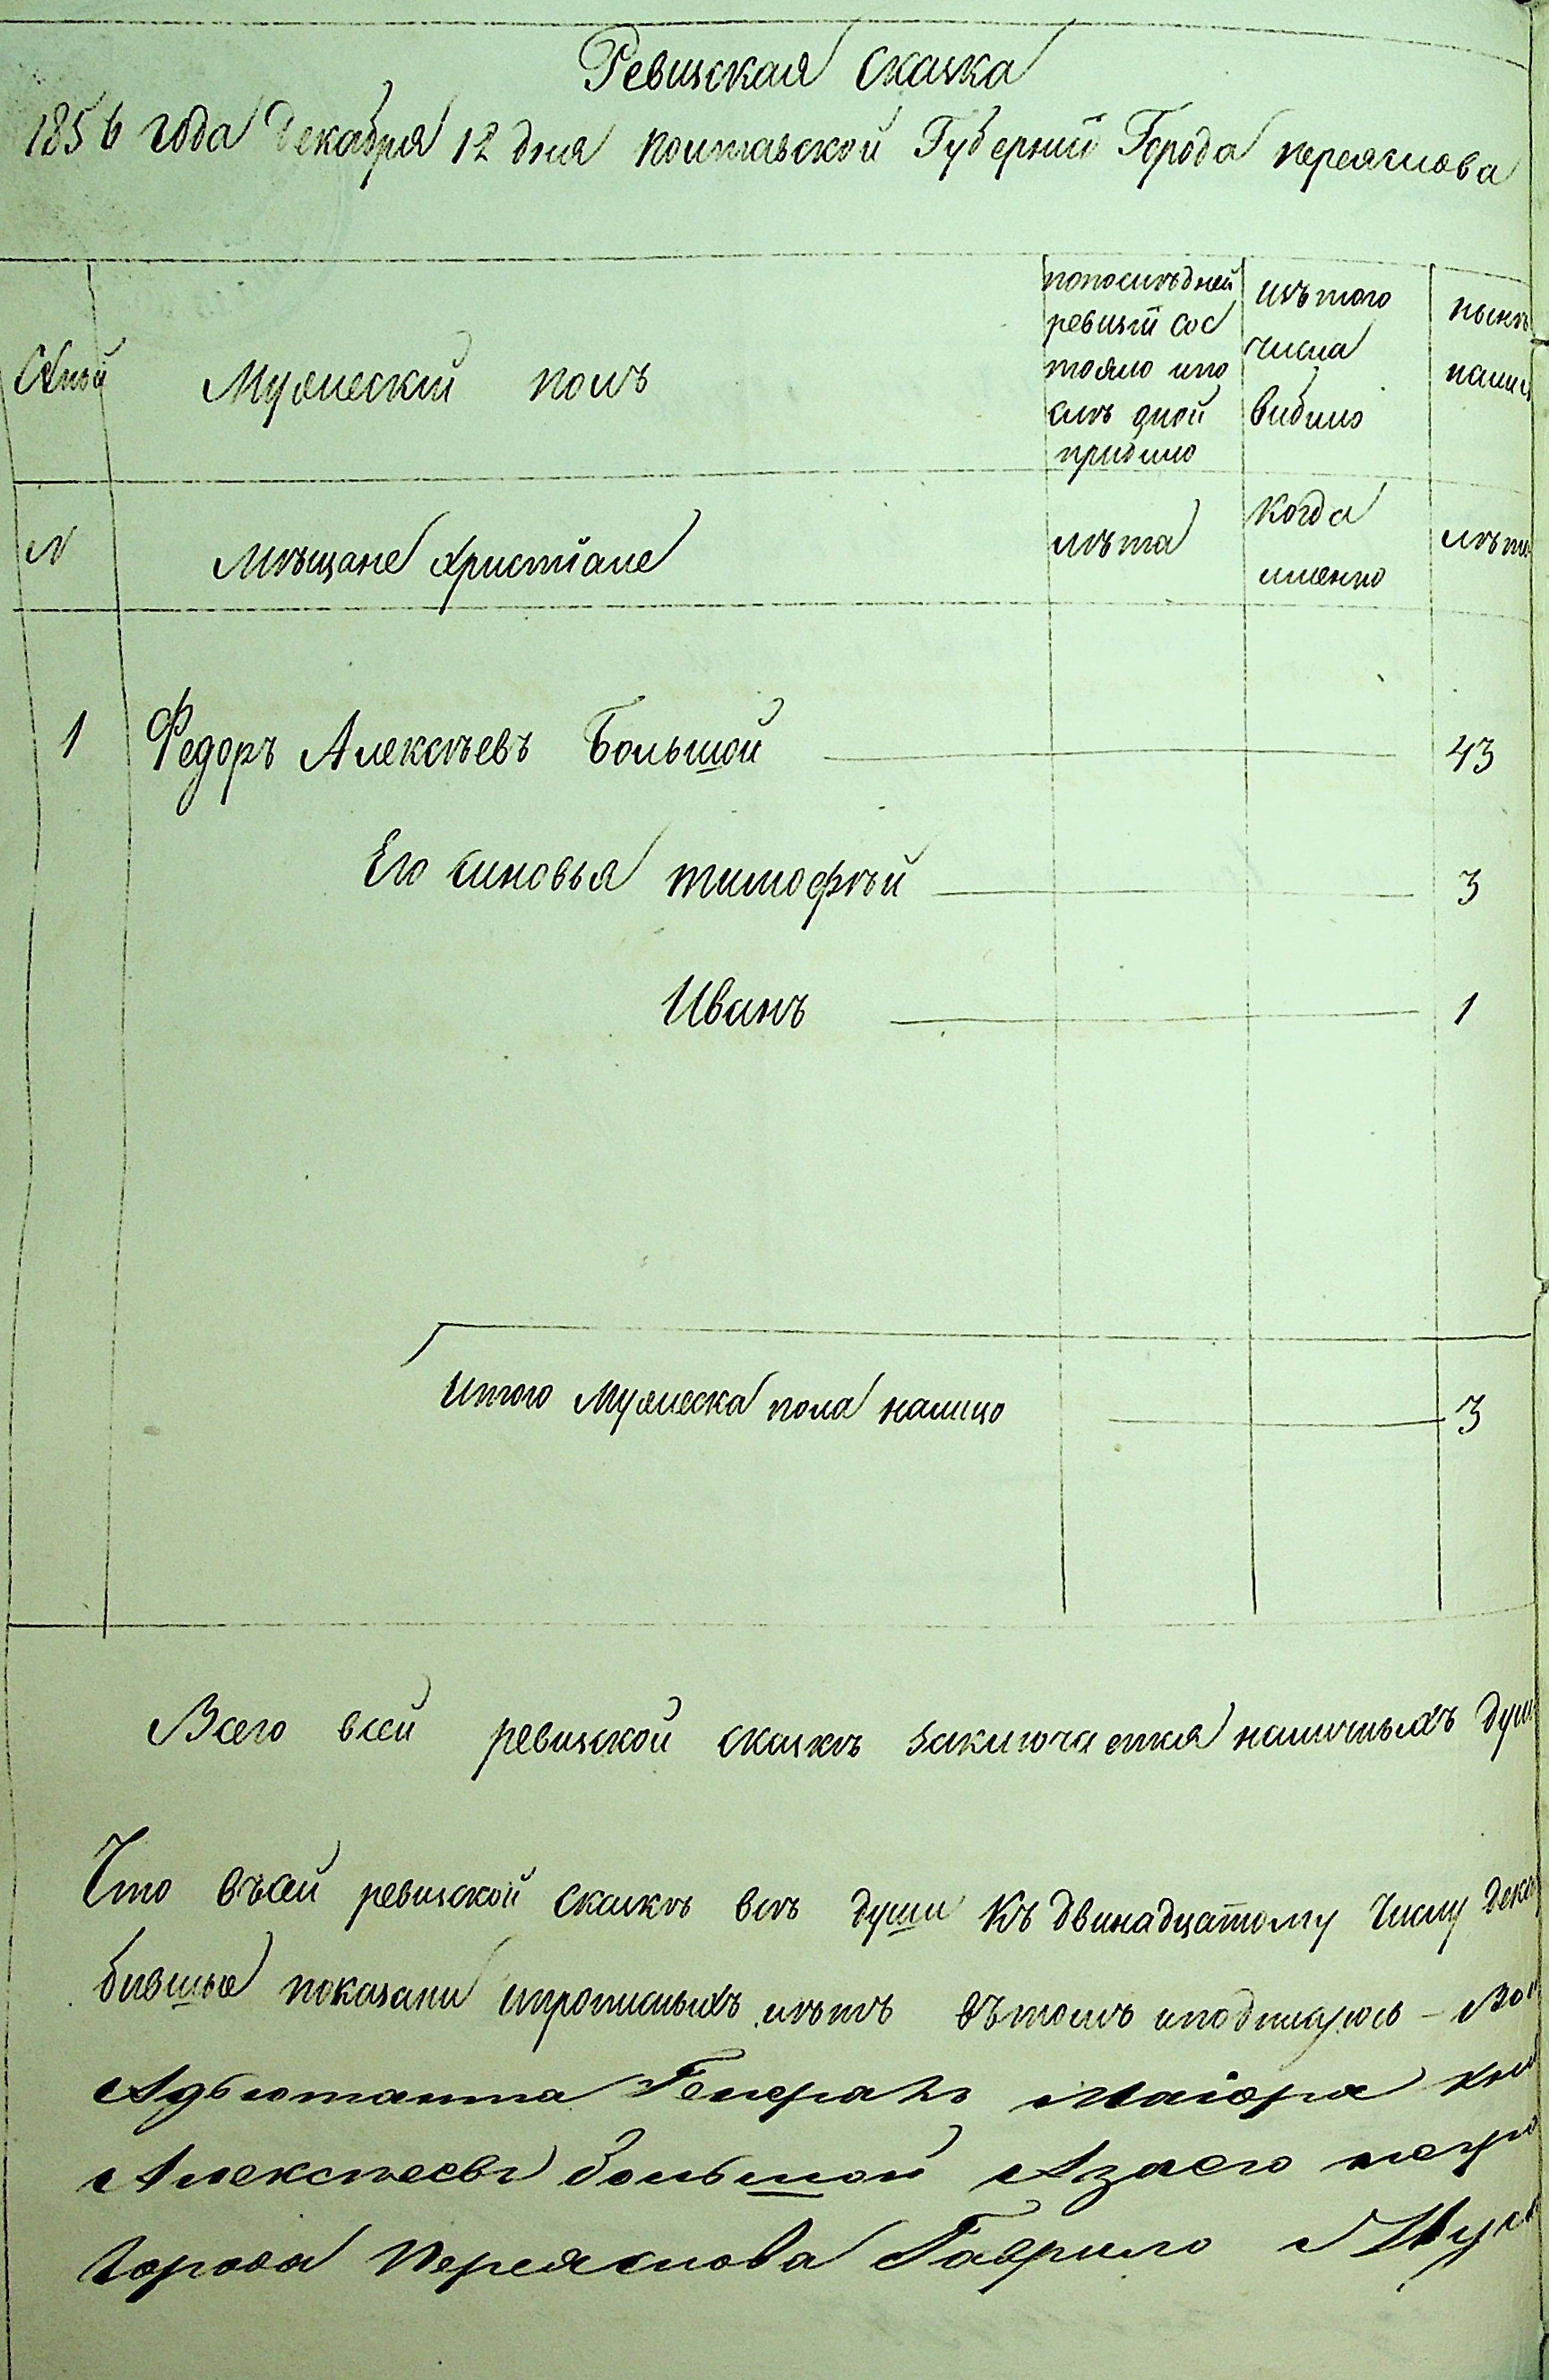 Ревизская Сказка
1856 года Декабря 12 дня Полтавской Губернии Города переяслова
Мужеский полъ
попослѣдней ревизіи сос тояло ипо слѣ оной прибило
изъ того числа вибило
нынѣ
N Мѣщане Христіане лѣта когда именно
1 Федоръ Алексѣевъ Большой 43
Его синовья тимофѣй 3
Иванъ 1
Итого Мужеска пола налицо 3
Всего всей ревизской сказкѣ заключается наличныхъ душ
Что въсей ревизской сказкѣ всѣ души Къ двинадцатому Числу Дека
бившые показани ипрописныхъ нѣтъ вътомъ иподписуюсь -
Адъютанта Генералъ Маіора
Алексѣевъ Большой Азаего
города Переяслова Гаврило